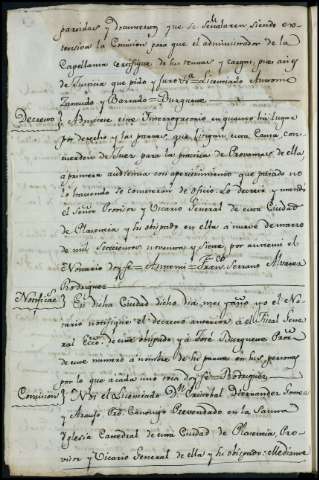 partidas y documentos que se señalaren siendo ex-
tensiva la Comision para que el administrador de la
Capellania certifique de sus rentas y cargas, pues asi es
de Justicia que pido y juro Vª Licenciado Antonio
Zamudo y Barrado = Burgueño
Decreto } Admitese este Interrogatorio en quanto ha lugar
por derecho y las partes, que litigan, en esta Causa, con-
curran de Juez para la practica de Provanzas de ella
a primera audiencia con apercivimiento que pasado no
lo haciendo se nombrará de oficio. Lo decretó y mandó
el Señor Provisor y Vicario General de esta Ciudad
de Plasencia y su obispado en ella a nueve de marzo
de mil setecientos noventa y siete, por ante mi el
Notario doy fe = Asmeni = Franco Serrano Alvarez
Rodriguez
Notificaon } En dicha Ciudad dicho dia, mes y año yo el No-
tario notifiqué el decreto anterior a el Fiscal Gene-
ral Ecco de este obispado y a José Burgueño Pror
de este numero a nombre de su parte en sus personas
por lo que a cada uno toca doy fe = Rodriguez
Comision } Nos el Licenciado Dn Christobal Hernandez Gomez
y Araujo Pco Canonigo Prevendado en la Santa
Iglesia Catedral de esta Ciudad de Plasencia, Pro-
visor y Vicario General de ella y su obispado = Mediante